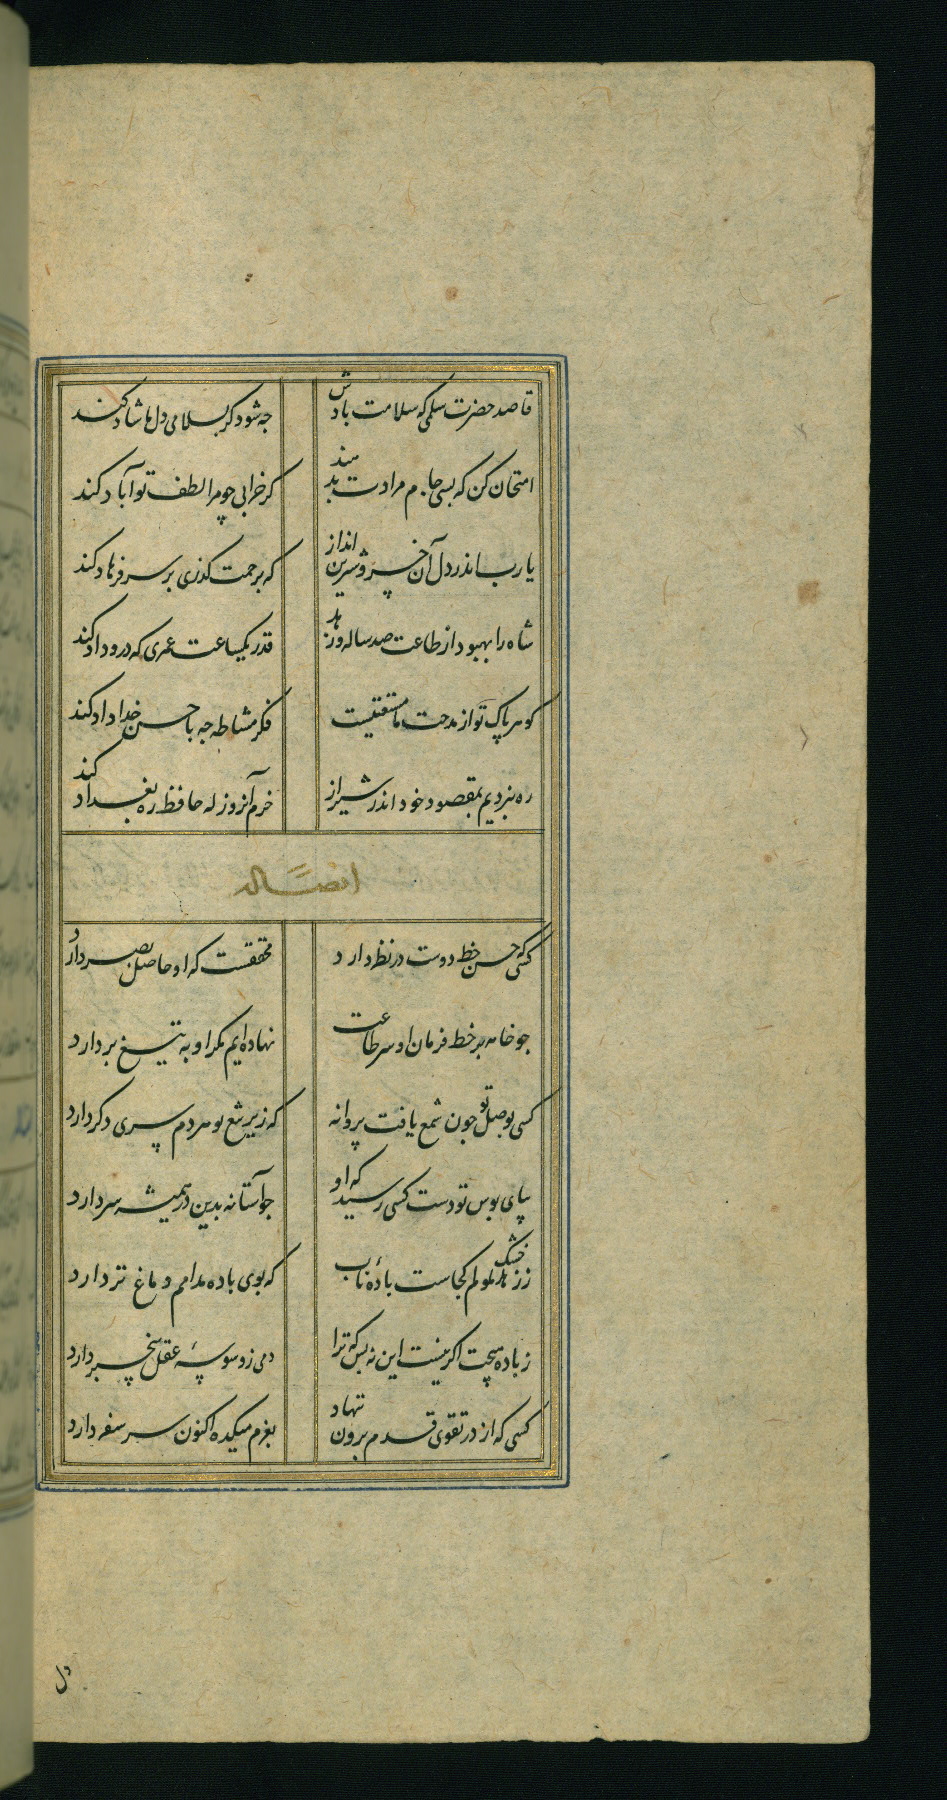 قاصد حضرت سلمی که سلامت بادش جه شود کر بسلامی دل ما شاد کند
امتحان کن که بسی جام مرادت بدهند کر خرابی چو مرا لطف تو آباد کند
یا رب اندر دل آن خسرو شیرین انداز که برحمت کذری بر سر فرهاد کند
شاه را به بود از طاعت صد ساله و زهد قدر یکساعت عمری که درو داد کند
کوهر پاک تو از مدحت ما مستغنیست فکر مشاطه جه با حسن خداداد کند
ره نبردیم بمقصود خود اندر شیراز خرم آنروز که حافظ ره بغداد کند
ایضاله
کسی که حسن خط دوست در نظر دارد محققست که او حاصل بصر دارد
جو خامه بر خط فرمان او سر طاعت نهاده ایم مکر او به تیغ بردارد
کسی بوصل تو جون شمع یافت پروانه که زیر تیغ تو هر دم سری دکر دارد
بپای بوس تو دست کسی رسید که او جو آستانه بدین در همیشه سر دارد
ز زهد خشک ملولم کجاست بادهٔ ناب که بوی باده مدامم دماغ تر دارد
ز باده هیچت اکر نیست این نه بس که ترا دمی ز وسوسهٔ عقل بیخبر دارد
کسی که از در تقوی قدم برون ننهاد بعزم میکده اکنون سر سفر دارد
دل